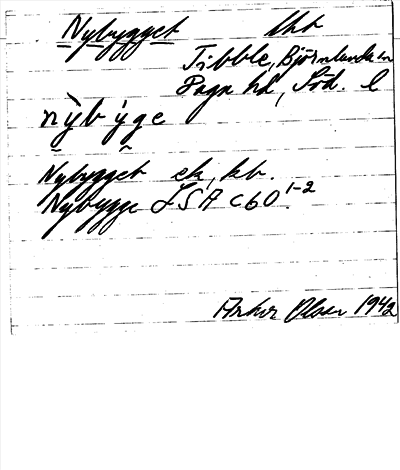 Nybygget lht
Tribble, Björnlunda sn
Daga hd, Söd. l
nybyge
Nybygget ek, kb.
Nybygge LSA C60 1-2
Arthur Olsson 1942